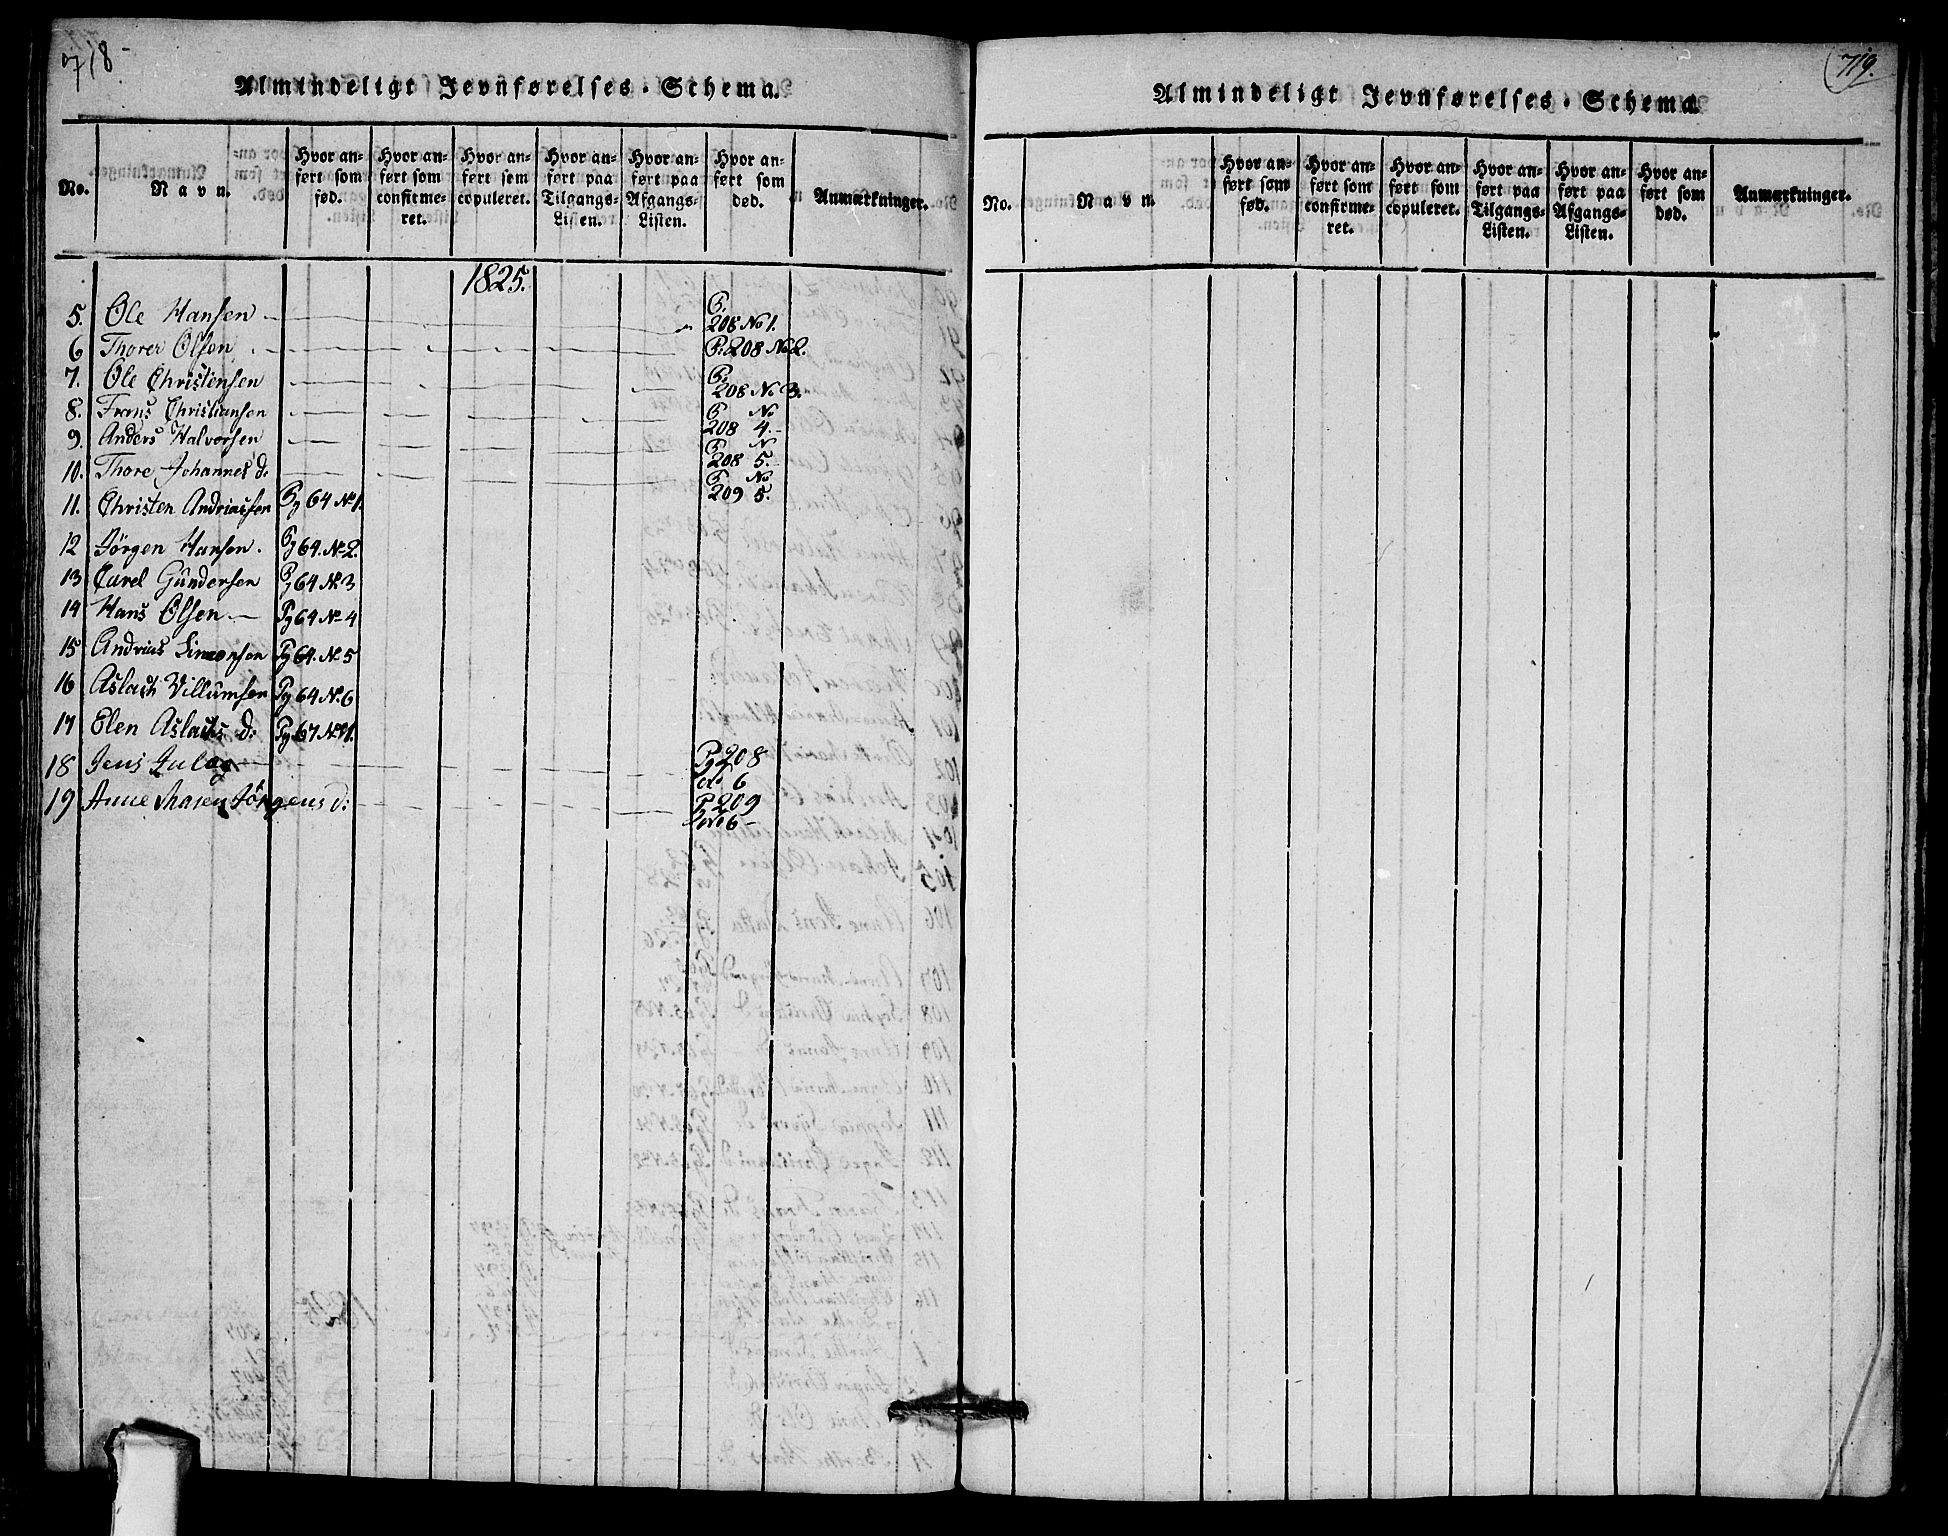 718
Almindeligt Jevnførelses-Schema.
No. Navn. Hvor anført som fød. Hvor anført som confirmeret. Hvor anført som copuleret. Hvor anført paa Tilgangs-Listen. Hvor anført paa Afgangs-Listen. Hvor anført som død. Anmærkninger.
1825.
5. Ole Hansen P. 208 No 1.
6 Thorer Olsen P. 208 No 2.
7. Ole Christensen P. 208 No 3.
8. Frans Christiansen P. 208 No 4.
9. Anders Halvorsen P. 208 N 5.
10. Thore Johannes d: P. 209 No 5.
11. Christen Andriassen Pg 64 No 1.
12 Jörgen Hansen. Pg 64. No 2.
13 Carel Gundersen Pg 64 No 3
14 Hans Olsen Pg 64 No 4
15 Andrias Simonsen Pg 64. No 5
16 Aslach Villumsen Pg 64 No. 6
17 Elen Aslachs d: Pg 67 No 1.
18 Jens Pg 208 No 6
19 Anne Maren Jörgens d: P 209 No 6
719.
Almindeligt Jevnførelses-Schema
No. Navn. Hvor anført som fød. Hvor anført som confirmeret. Hvor anført som copuleret. Hvor anført paa Tilgangs-Listen. Hvor anført paa Afgangs-Listen. Hvor anført som død. Anmærkninger.